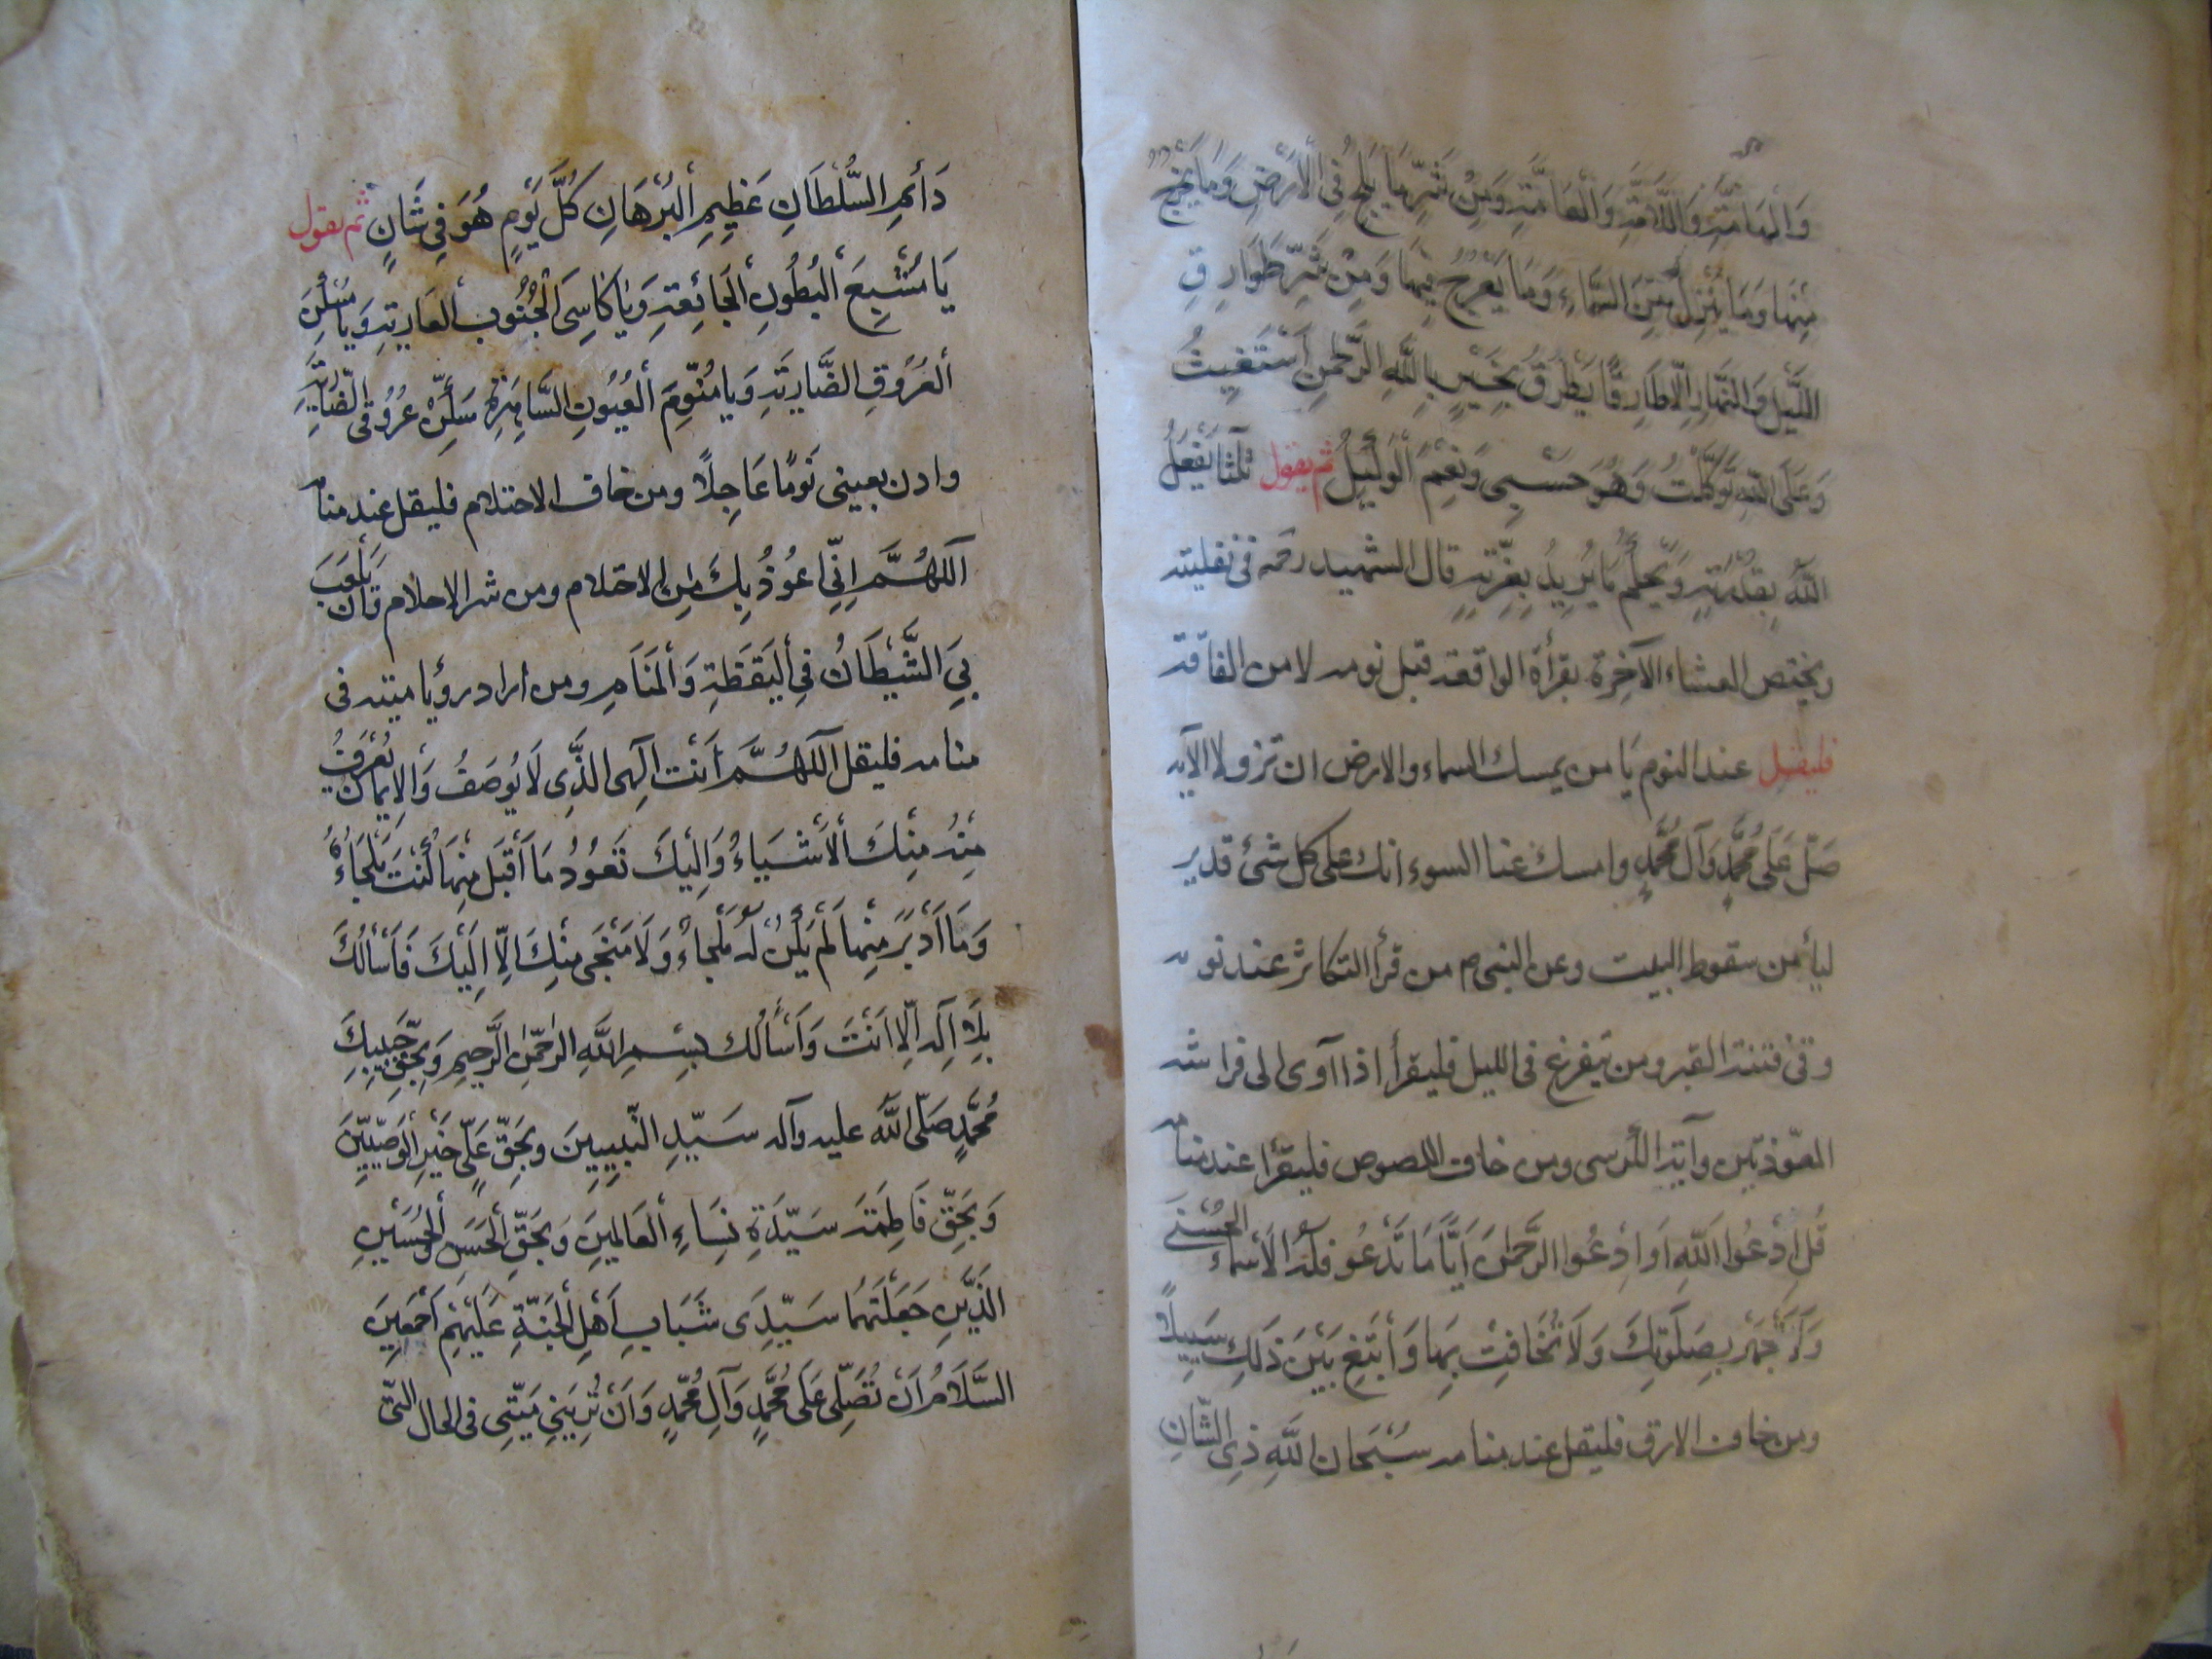 وَالْهَامَّةِ وَاللَّامَّةِ وَالْعَامَّةِ وَمِنْ شَرِّ مَا يَلِجُ فِي الْاَرْضِ وَمَا يَخْرُجُ
مِنْهَا وَمَا يَنْزِلُ مِنَ السَّمَاءِ وَمَا يَعْرُجُ فِيهَا وَمِنْ شَرِّ طَوَارِقِ
اللَّيْلِ وَالنَّهَارِ اِلَّا طَارِقًا يَطْرُقُ بِخَيْرٍ بِاللَّهِ الرَّحْمنِ اَسْتَغِيثُ
وَعَلَى اللَّهِ تَوَكَّلْتُ وَهُوَ حَسْبِي وَنِعْمَ الْوَكِيلُ ثم يقول ثلثا يَفْعَلُ
اللَّهُ بِقُدْرَتِهِ وَيَحْكُمُ مَا يُرِيدُ بِعِزَّتِهِ قال الشهيد رحمه فى نفليته
ويختص العشاء الآخِرة بقرأة الواقعة قبل نومه لامن الفاقة
فليقل عند النوم يَا من يمسك السماء والارض ان تزولا الآيه
صَلِّ عَلَى مُحَمَّدٍ وَآلِ مُحَمَّدٍ وامسك عنا السوء انك على كل شئ قدير
ليأمن سقوط البيت وعن النبى ص من قرأ التكاثر عند نومه
وقى فتنة القبر ومن يتفزع فى الليل فليقرأ اذا آوى الى فراشه
المعوذتين وآية الكرسى ومن خاف اللصوص فليقرأ عند منامه
قُلِ ادْعُوا اللَّهَ اَوِ ادْعُوا الرَّحْمنَ اَيًّا مَا تَدْعُو فله الاَسْماءُ الْحُسْنَى
وَلَا تَجْهَرْ بِصَلَوتِكَ وَلَا تُخَافِتْ بِهَا وَابْتَغِ بَيْنَ ذَلِكَ سَبِيلًا
ومن خاف الارق فليقل عند منامه سُبْحَان اللَّهِ ذِي الشَّانِ
دَائمِ السُّلْطَانِ عَظِيمِ الْبُرْهَانِ كُلَّ يَوْمٍ هُوَ فِي شَانٍ ثم يقول
يَا مُشْبِعَ الْبُطُونِ الْجَائِعَةِ وَيَا كَاسِىَ الْجُنُوبِ الْعَارِيَةِ وَيا مُسَكِّنَ
الْعُرُوقِ الضَّارِبَةِ وَيا مُنَوِّمَ الْعُيُونِ السَّاهِرَةِ سَكِّنْ عُرُوقى الضَّارِبَةَ
وادن بعينى نَومًا عَاجِلًا ومن خاف الاحتلام فليقل عند منامه
اَللّهُمَّ اِنِّي اعُوذُ بِكَ مِنَ الاحتلام ومن شر الاحلام وان يَلْعَبَ
بِيَ الشَّيْطَانُ فِي الْيَقَظَةِ وَالْمَنَامِ ومن اراد رؤيا ميته فى
منامه فليقل اَللّهُمَّ اَنْتَ اِلَهى الَّذِى لَا يُوصَفُ وَالايمان يُعْرَفُ
مِنْهُ مِنْكَ الْاَشْيَاءُ وَاِلَيْكَ تَعُودُ مَا اَقْبَلَ مِنْهَا كُنْتَ مَلْجَاءَهُ
وَمَا اَدْبَرَ مِنْها لَمْ يَكُنْ لَهُ مَلْجاءٌ وَلَا مَنْجَى مِنْكَ اِلَّا اِلَيْكَ فَاَسْأَلُكَ
بِلَا اِلَهَ اِلَّا اَنْتَ وَاَسْأَلُكَ بِسْمِ اللَّهِ الرَّحْمنِ الرَّحِيمِ وَبِحَقِّ حَبِيبِكَ
مُحَمَّدٍ صَلَّى اللَّهُ عليه وآله سَيِّدِ النَّبِيِينَ وبِحَقِّ عَلِيٍّ خَيْرِ الْوَصِيِّينَ
وَبِحَقِّ فَاطِمَةَ سَيِّدَةِ نِسَاءِ الْعَالَمِينَ وَبِحَقِّ الْحَسَنِ وَالْحُسَيْنِ
الَّذَيْنِ جَعَلْتَهُمَا سَيِّدَى شَبَابِ اَهْلِ الْجَنَّةِ عَلَيْهِمْ اَجْمَعِينَ
السَّلَامُ اَنْ تُصَلِّى عَلَى مُحَمَّدٍ وَآلِ مُحَمَّدٍ وَاَنْ تُرِيَنِي مَيِّتِى فى الحال الَّتى